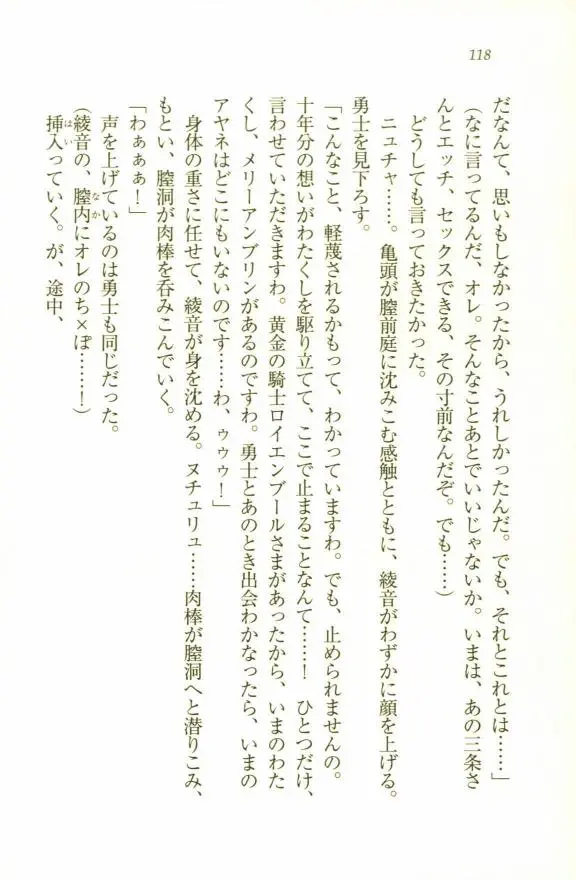 118
だなんて、思いもしなかったから、うれしかったんだ。でも、それとこれとは……」
(なに言ってるんだ、オレ。そんなことあとでいいじゃないか。いまは、あの三条さ
んとエッチ、セックスできる、その寸前なんだぞ。でも……)
どうしても言っておきたかった。
ニュチャ……。亀頭が膣前庭に沈みこむ感触とともに、綾音がわずかに顔を上げる。
勇士を見下ろす。
「こんなこと、軽蔑されるかもって、わかっていますわ。でも、止められませんの。
十年分の想いがわたくしを駆り立てて、ここで止まることなんて……！　ひとつだけ、
言わせていただきますわ。黄金の騎士ロイエンブールさまがあったから、いまのわた
くし、メリーアンブリンがあるのですわ。勇士とあのとき出会わかなったら、いまの
アヤネはどこにもいないのです……わ、ゥゥゥ！」
身体の重さに任せて、綾音が身を沈める。ヌチュリュ……肉棒が膣洞へと潜りこみ、
もとい、膣洞が肉棒を呑みこんでいく。
「わぁぁぁ！」
声を上げているのは勇士も同じだった。
(綾音の、膣内にオレのち×ぽ……！)
挿入っていく。が、途中、